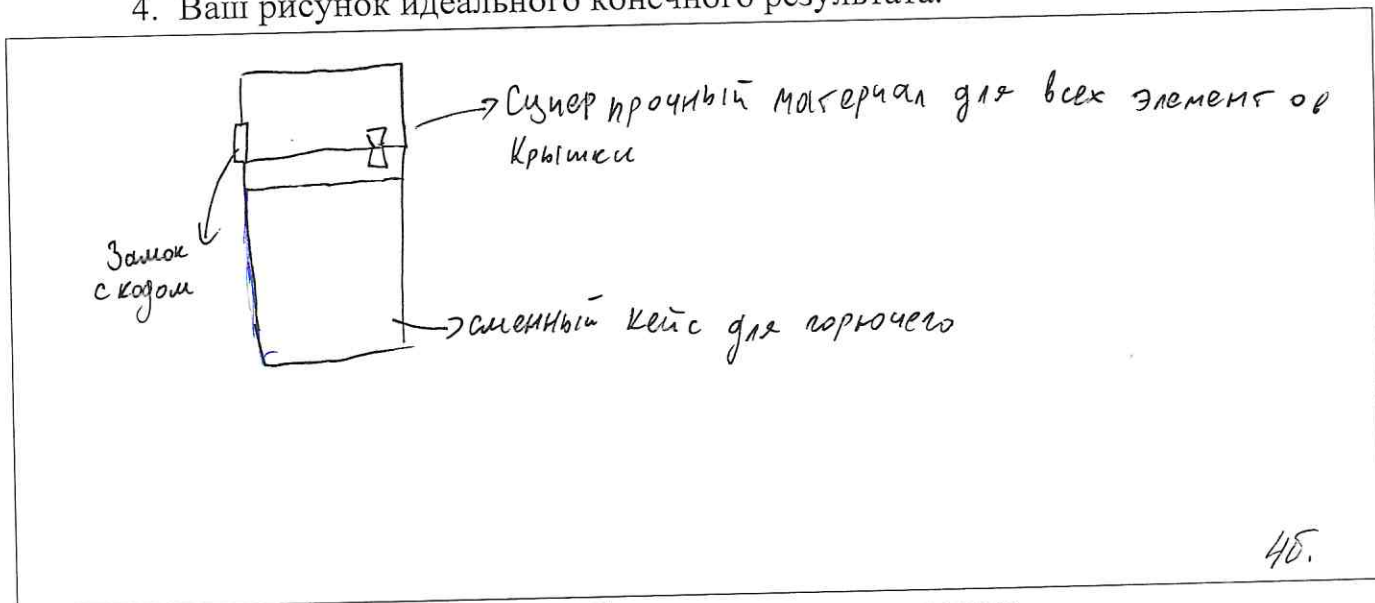 4. Ваш рисунок идеального конечного результата.
Супер прочный материал для всех элементов
крышки
Замок
с кодом
сменный кейс для горючего
4б.